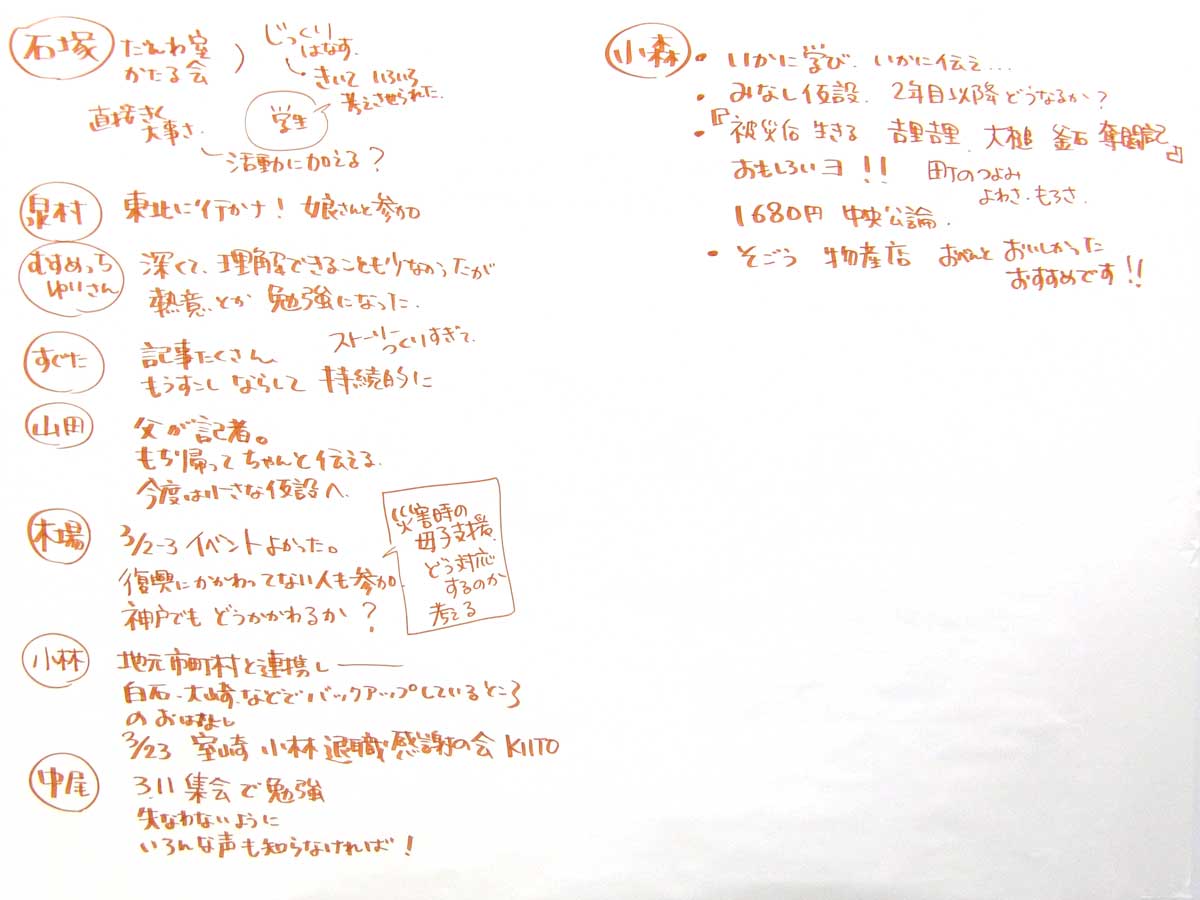 石塚
だんわ室
かたる会
じっくり
はなす.
きいて いろいろ
考えさせられた.
直接きく
大事さ.
学生
活動に加える?
泉村 東北に行かナ! 娘さんと参加
むすめっち
ゆいさん
深くて、理解できることも少なかったが
熱意とか 勉強になった.
すぐた
記事たくさん
ストーリー
つくりすぎて.
もうすこし ならして 持続的に
山田
父が記者。
もち帰ってちゃんと伝える.
今度は小さな仮設へ.
木場
3/2-3 イベントよかった。
復興にかかわってない人も参加.
神戸でも どうかかわるか?
災害時の
母子支援.
どう対応
するのか
考える
小林
地元市町村と連携し——
白石、大崎、などでバックアップしているところ
のおはなし
3/23 室崎 小林 退職感謝の会 KIITO
中尾
3.11 集会で勉強
失なわないように
いろんな声も知らなければ!
小森
・いかに学び、いかに伝え...
・みなし仮設. 2年目以降どうなるか?
・『被災后 生きる 吉里吉里、大槌 釜石 奮闘記』
おもしろいヨ!! 町のつよみ
よわさ・もろさ.
1680円 中央公論.
・そごう 物産店 おべんと おいしかった
おすすめです!!